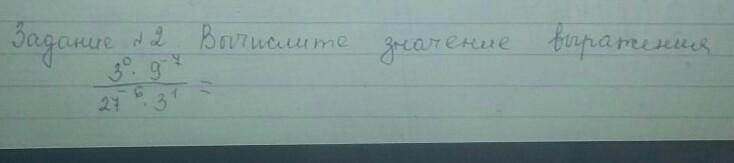 Задание №2 Вычислите значение выражения
3⁰ · 9⁻⁷
27⁻⁶ · 3¹ =